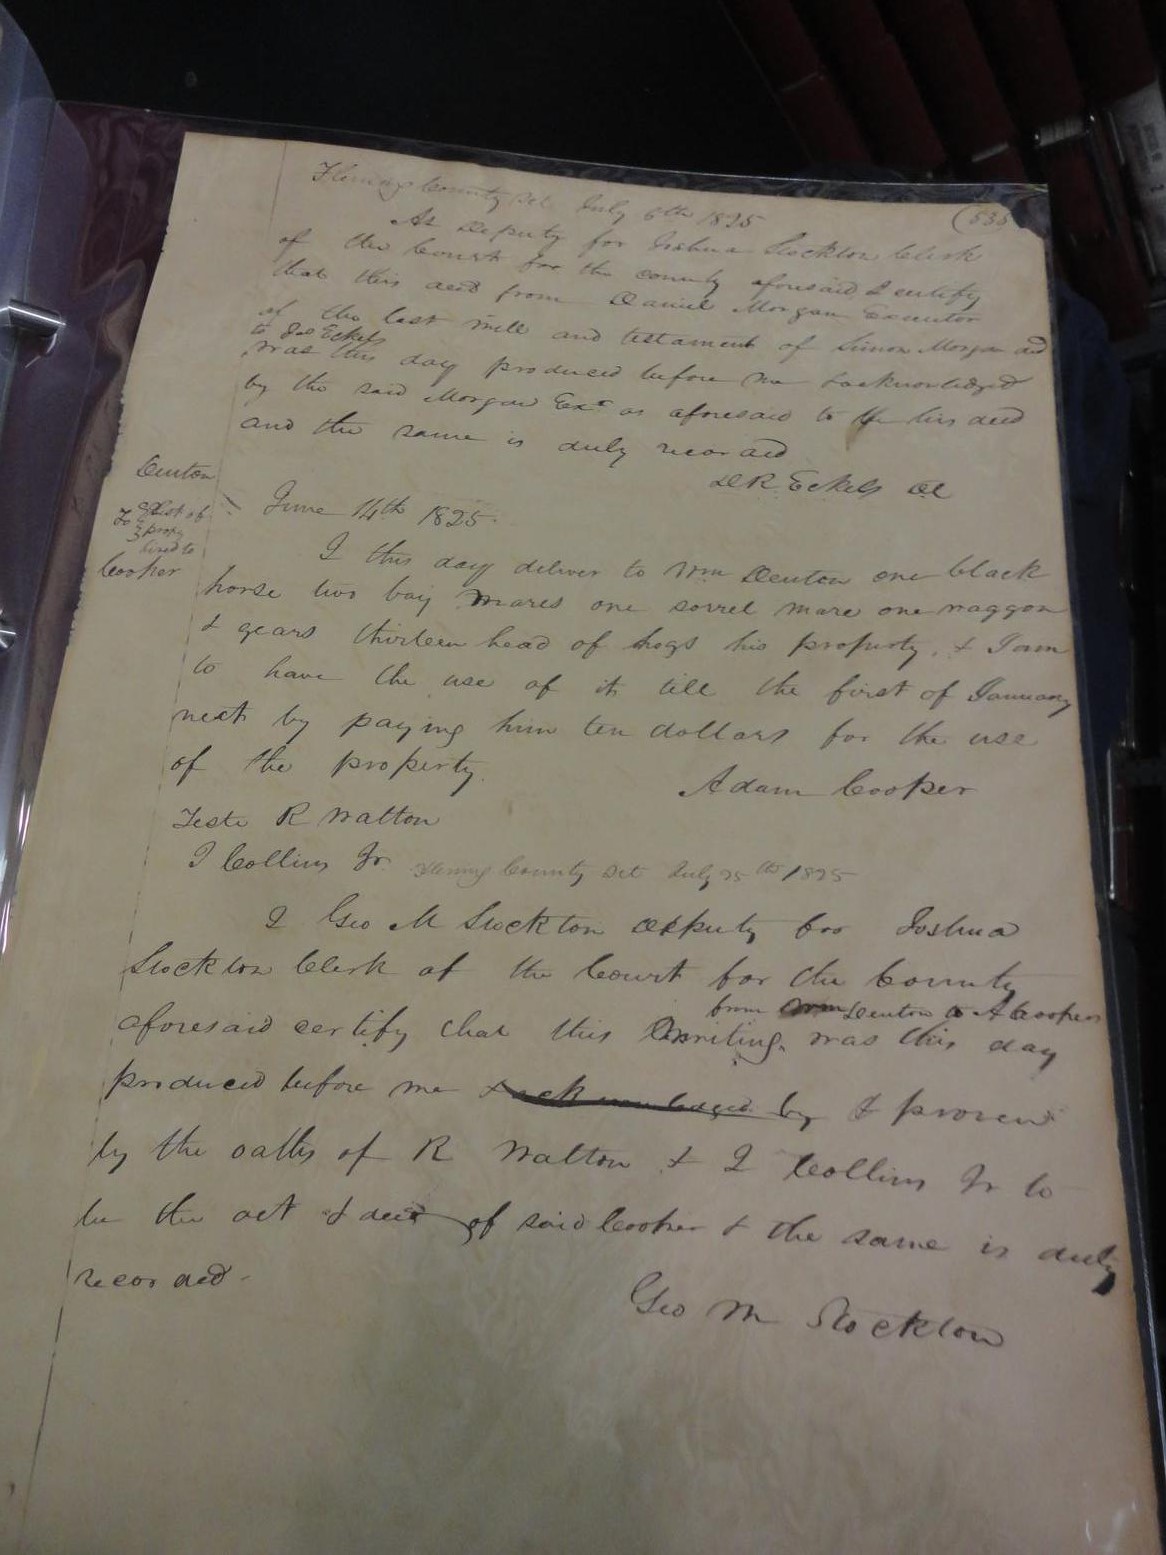 Fleming County Sct July 6th 1825
(535
As Deputy for Joshua Stockton Clerk
of the Court for the county aforesaid I certify
that this deed from Daniel Morgan Executor
of the last will and testament of Simon Morgan decd
to Jos Eckels
was this day produced before me & acknowledged
by the said Morgan Exr as aforesaid to be his deed
and the same is duly recorded
D R Eckels DC
Denton
To list of
propy
hired to
Cooper
June 14th 1825
I this day deliver to Wm Denton one black
horse two bay mares one sorrel mare one waggon
& gears thirteen head of hogs his property, & I am
to have the use of it till the first of January
next by paying him ten dollars for the use
of the property.
Adam Cooper
Teste R Walton
I Collins Jr.
Fleming County Sct July 25th 1825
I Geo M Stockton depputy for Joshua
Stockton Clerk of the Court for the County
from Denton to A Cooper
aforesaid certify that this writing was this day
produced before me & acknowledged by & proven
by the oaths of R Walton & I Collins Jr to
be the act & deed of said Cooper & the same is duly
recorded.
Geo M Stockton